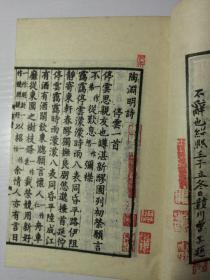 不辭也紹熙壬子立冬日贛川曾集題
陶淵明詩
停雲一首
停雲思親友也罇湛新醪園列初榮願言
不從歎息彌襟
停雲靄靄時雨濛濛八表同昏平路伊阻
靜寄東軒春醪獨撫良朋悠邈搔首延佇
停雲靄靄時雨濛濛八表同昏平陸成江
有酒有酒閒飲東窗願言懷人舟車
靡從東園之樹枝條載榮競用新好
以招余情人亦有言日